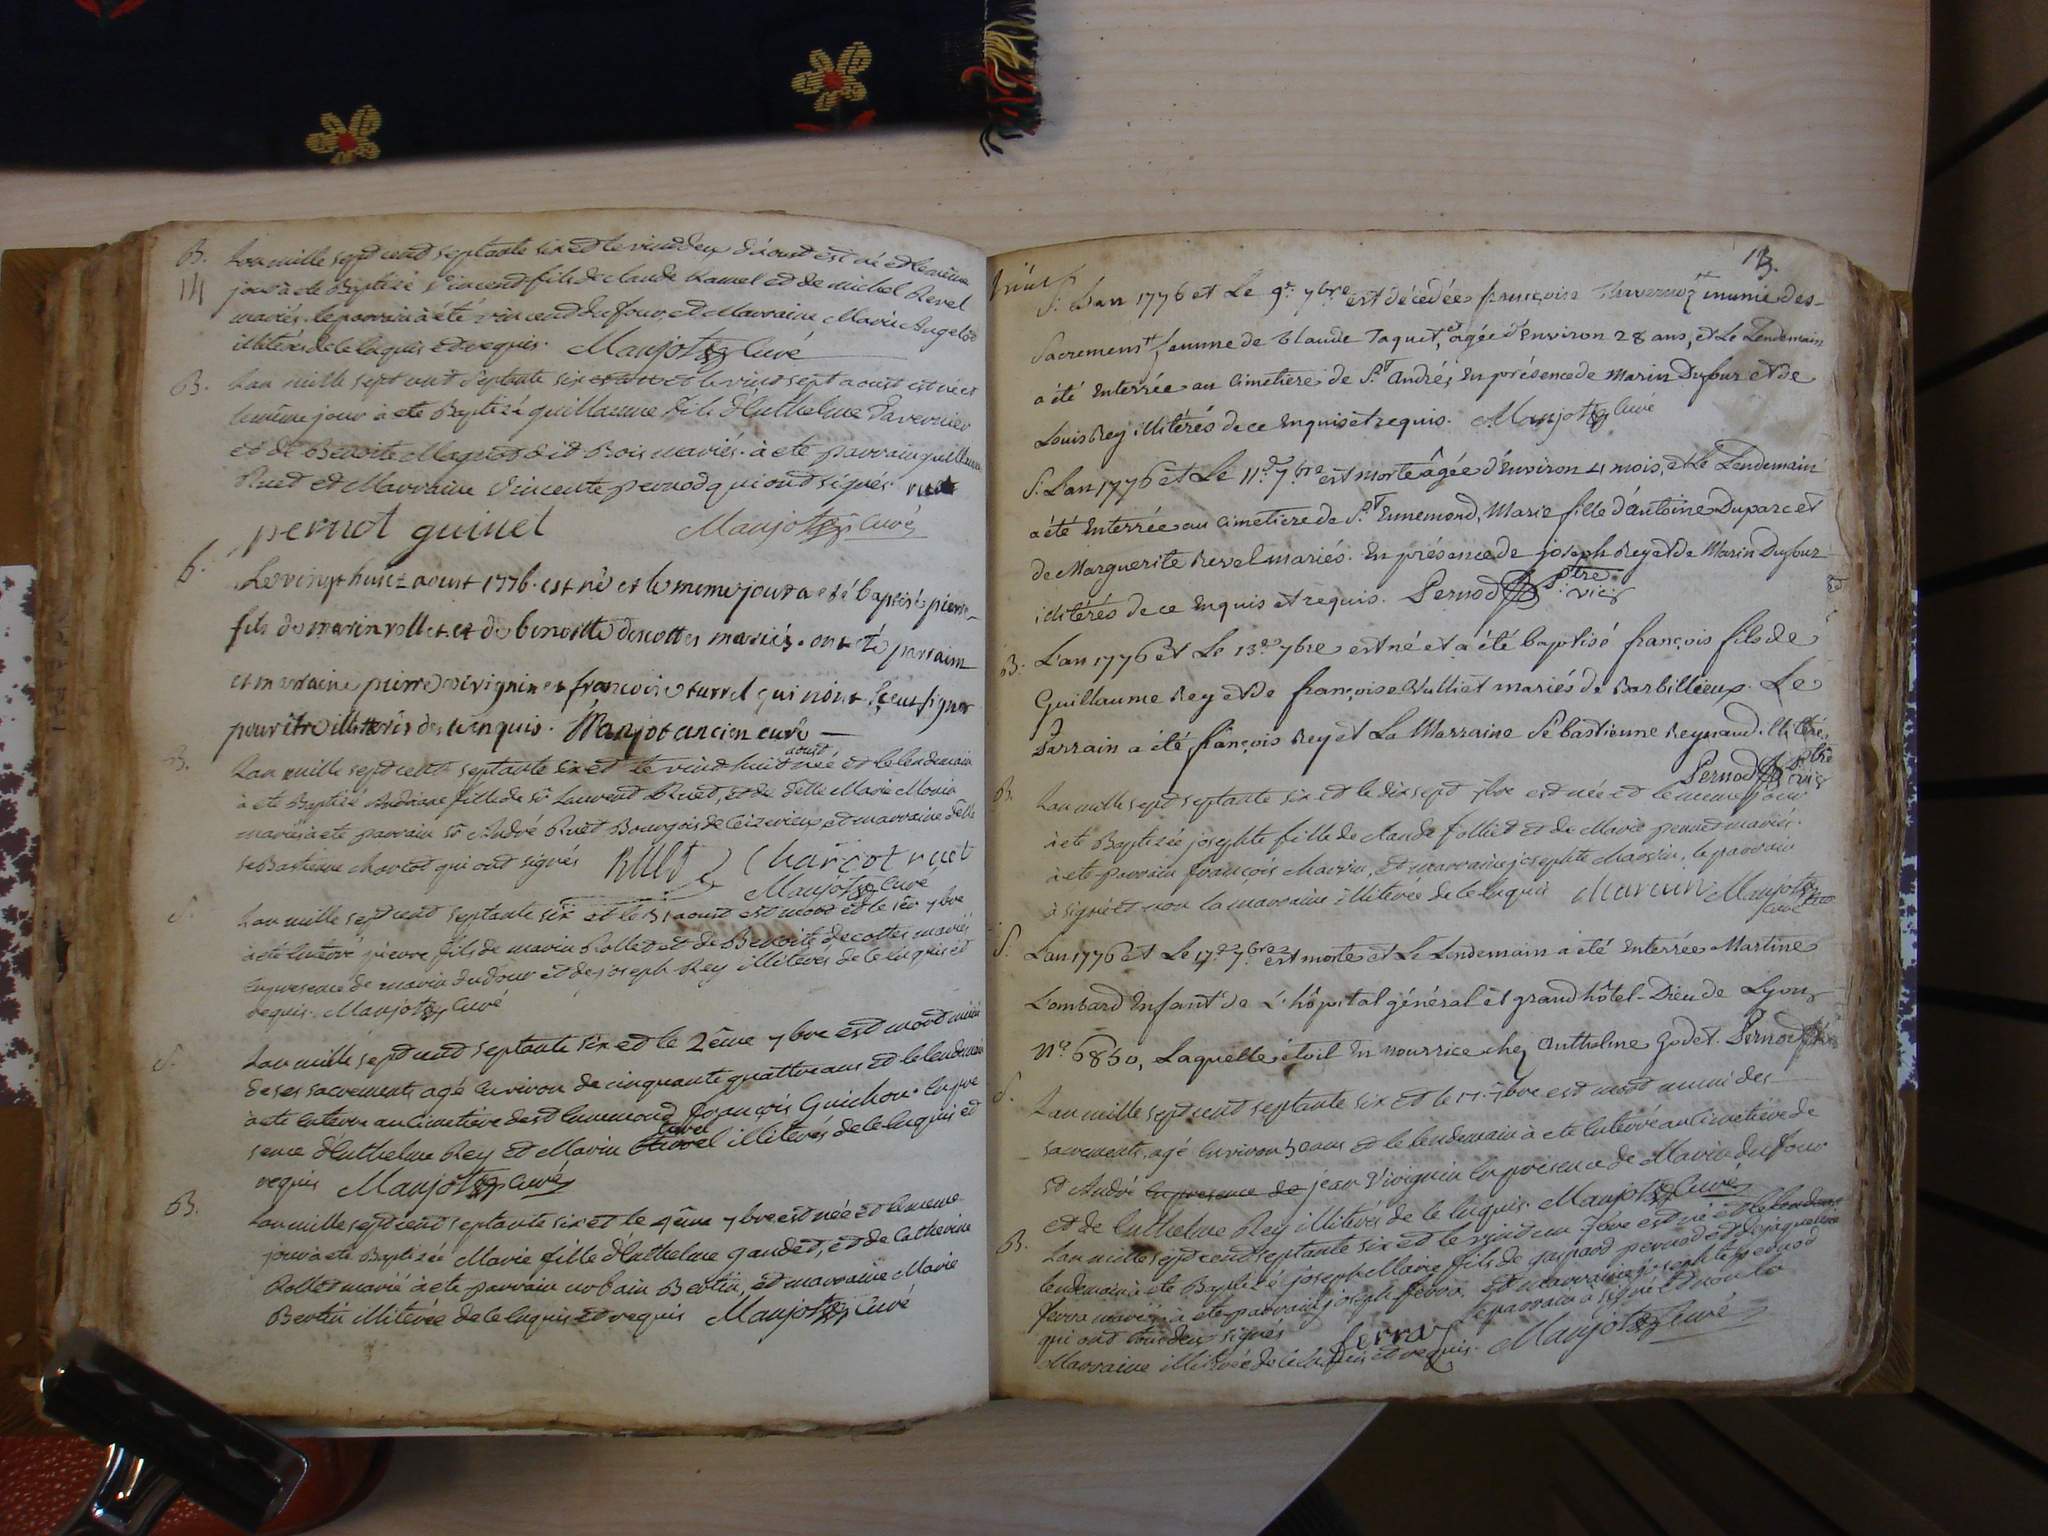 B. L'an mille sept cent septante six et le vint deux d'aoust est né et le même
14 jour à ete Baptizé Vincent fils de claude Ramel et de michel Revel
mariés. le parrain à été vincent dufour et Marraine Marie Angelot
illiterés de ce Enquis et requis. Manjot Curé
B. L'an mille sept cent septante six et le vint sept aoust est né et
le même jour à ete Baptizé guillaume fils d'Anthelme Tavernier
et de Benoite Magnot dit Bois mariés. à ete parrain guillaume
Ruet et Marraine Vincente pernod qui ont signés. ruet
pernot guinel Manjot Curé
b. Le vingt huict aoust 1776. est né et le meme jour a été baptisé pierre
fils de marin rollet et de benoitte descottes mariés. ont été parrain
et marraine pierre vivignin et francoise turrel qui n'ont sçeut signer
pour être illitterés de ce enquis. Manjot ancien curé
B. L'an mille sept cent septante six et le vint huit aoust née et le lendemain
à ete Baptizé Andriane fille de sr Laurent Ruet, et de delle Marie Monin
mariés à ete parrain sr André Ruet Bourgois de Ceizerieux et marraine delle
seBastienne Charcot qui ont signés RUET Charcot ruet
Manjot Curé
S. L'an mille sept cent septante six et le 31 aoust est mort et le 1er 7bre
à ete Enterré pierre fils de marin Rollet et de Benoite decottes mariés
En presence de marin dufour et de joseph Rey illiterés de ce Enquis et
requis. Manjot Curé
S. L'an mille sept cent septante six et le 2ême 7bre est mort muni
de ses sacrements agé Environ de cinquante quattre ans et le lendemain
à ete Enterré au Cimetiere de st Ennemond françois Guichon. En pre
sence d'Anthelme Rey et Marin turrel turrel illiterés de ce Enquis et
requis Manjot Curé
B. L'an mille sept cent septante six et le 4ême 7bre est née et le meme
jour à ete Baptizée Marie fille d'Anthelme gaudet, et de Catherine
Rollet marié à ete parrain urbain Bertin, et marraine Marie
Bertin illiterée de ce Enquis et requis Manjot Curé
13.
S. L'an 1776 et Le 9e 7bre est décedée françoise Thavernoz munie des
Sacremens, femme de Claude Taquet, agée d'Environ 28 ans, et Le Lendemain
a été Enterrée au Cimetiere de St André, En présence de Marin Dufour et de
Louis Rey illitérés de ce Enquis et requis. Manjot Curé
S. L'an 1776 et Le 11e 7bre est morte âgée d'Environ 4 mois, et Le Lendemain
a été Enterrée au Cimetiere de St Ennemond, Marie fille d'antoine Duparc et
de Marguerite Revel mariés. En présence de joseph Rey et de Marin Dufour
illitérés de ce Enquis et requis. Pernod Ptre vic
B. L'an 1776 et Le 13e 7bre est né et a été baptisé françois fils de
Guillaume Rey et de françoise Vulliet mariés de Barbillieux. Le
Parrain a été françois Rey et La Marraine Sébastienne Reynaud. illitérés
Pernod Ptre vic
B. L'an mille sept septante six et le dix sept 7bre est née et le meme jour
à ete Baptizée josephte fille de claude folliet et de Marie pernet mariés.
à ete parrain françois Marin, et marraine josephte Marcin, le parrain
à signé et non la marraine illiterée de ce Enquis Marcin Manjot Curé
S. L'an 1776 et Le 17e 7bre est morte et Le Lendemain a été Enterrée Martine
Lombard Enfant de L'hôpital général et grand hôtel-Dieu de Lyon
No 6850, Laquelle étoit En nourrice chez Anthelme Godet. Pernod
S. L'an mille sept cent septante six et le 17. 7bre est mort muni des
sacrements. agé Environ 50 ans et le lendemain à ete Enterré au Cimetiere de
st André En presence de jean Vivignin En presence de Marin dufour
et de Anthelme Rey illiterés de ce Enquis. Manjot Curé
B. L'an mille sept cent septante six et le vint un 7bre est né et le lendemain
lendemain à ete Baptizé joseph Marie fils de gaspard pernod et de jaqueline
ferra mariés à ete parrain joseph ferra, et marraine josephte pernod
qui ont tous deux signés ferraz le parrain a signé et non la
Marraine illiterée de ce Enquis et requis. Manjot Curé